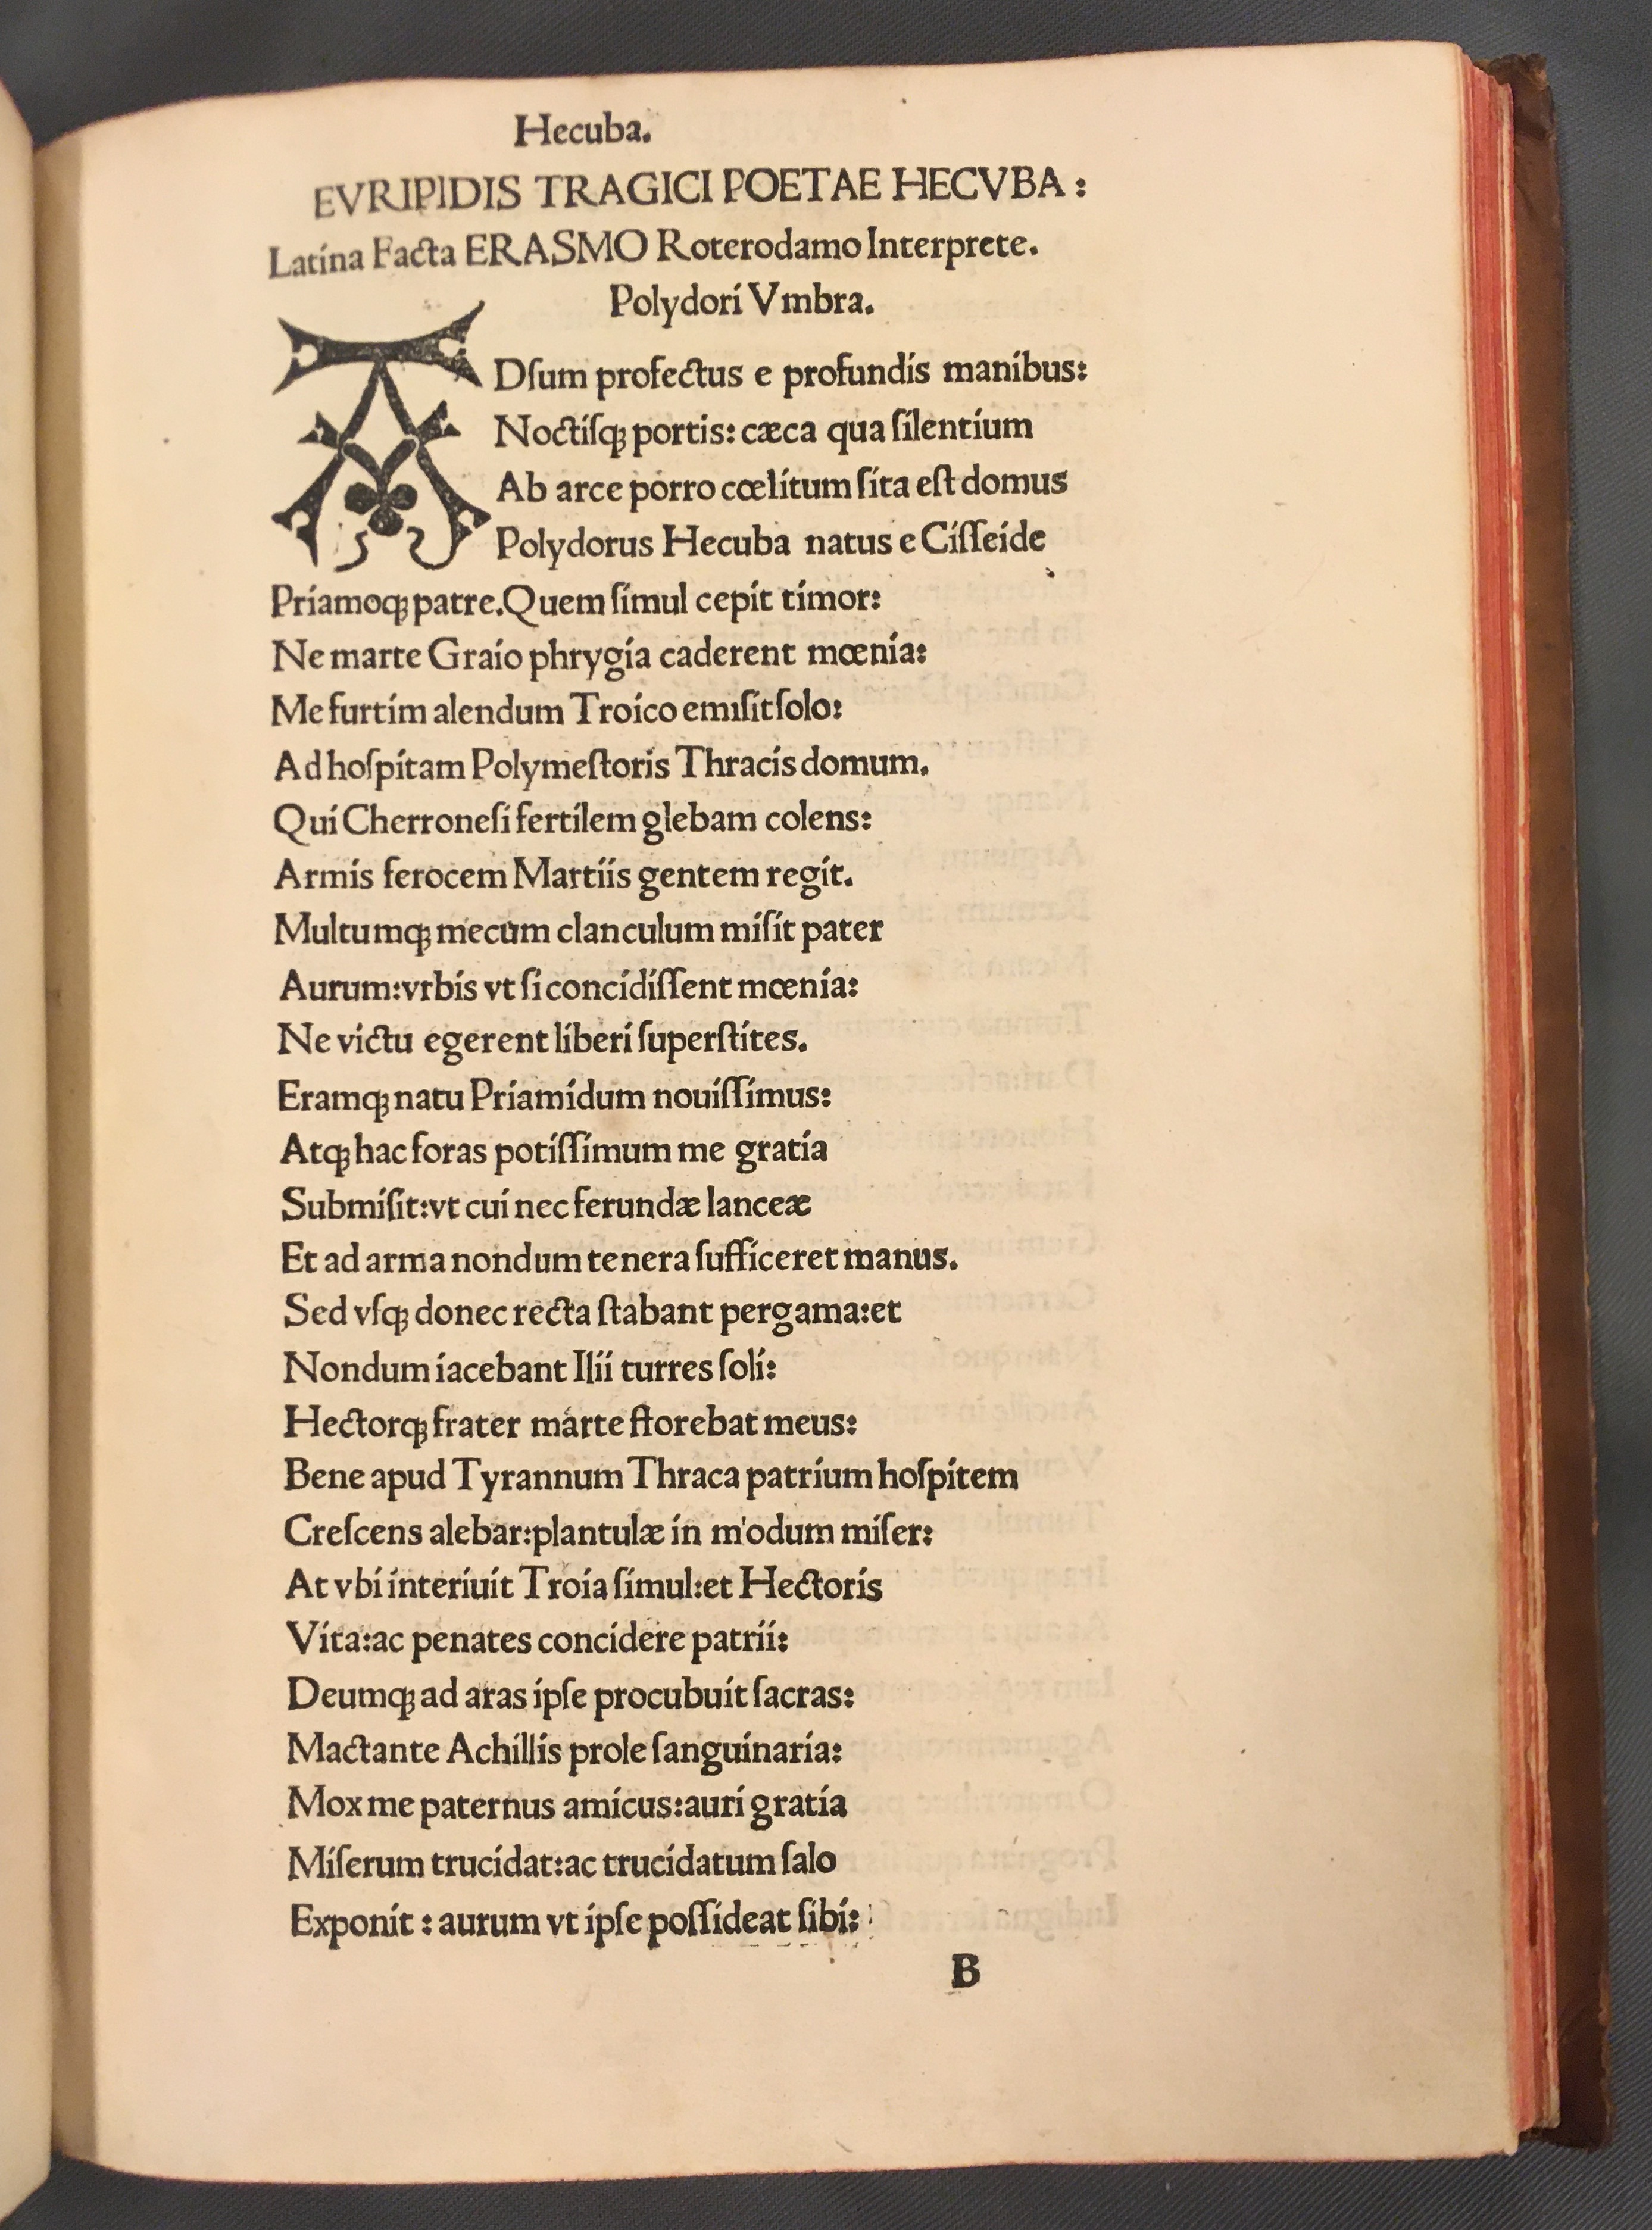 Hecuba.
EVRIPIDIS TRAGICI POETAE HECVBA:
Latina Facta ERASMO Roterodamo Interprete.
Polydori Vmbra.
ADſum profectus e profundis manibus:
Noctiſqꝫ portis: cæca qua ſilentium
Ab arce porro cœlitum ſita eſt domus
Polydorus Hecuba natus e Ciſſeide
Priamoqꝫ patre. Quem ſimul cepit timor:
Ne marte Graio phrygia caderent mœnia:
Me furtim alendum Troico emiſit ſolo:
Ad hoſpitam Polymeſtoris Thracis domum.
Qui Cherroneſi fertilem glebam colens:
Armis ferocem Martiis gentem regit.
Multumqꝫ mecum clanculum miſit pater
Aurum:vrbis vt ſi concidiſſent mœnia:
Ne victu egerent liberi ſuperſtites.
Eramqꝫ natu Priamidum nouiſſimus:
Atqꝫ hac foras potiſſimum me gratia
Submiſit:vt cui nec ferundæ lanceæ
Et ad arma nondum tenera ſufficeret manus.
Sed vſqꝫ donec recta ſtabant pergama:et
Nondum iacebant Ilii turres ſoli:
Hectorqꝫ frater marte florebat meus:
Bene apud Tyrannum Thraca patrium hoſpitem
Creſcens alebar:plantulæ in m'odum miſer:
At vbi interiuit Troia ſimul:et Hectoris
Vita:ac penates concidere patrii:
Deumqꝫ ad aras ipſe procubuit ſacras:
Mactante Achillis prole ſanguinaria:
Mox me paternus amicus:auri gratia
Miſerum trucidat:ac trucidatum ſalo
Exponit : aurum vt ipſe poſſideat ſibi:
B